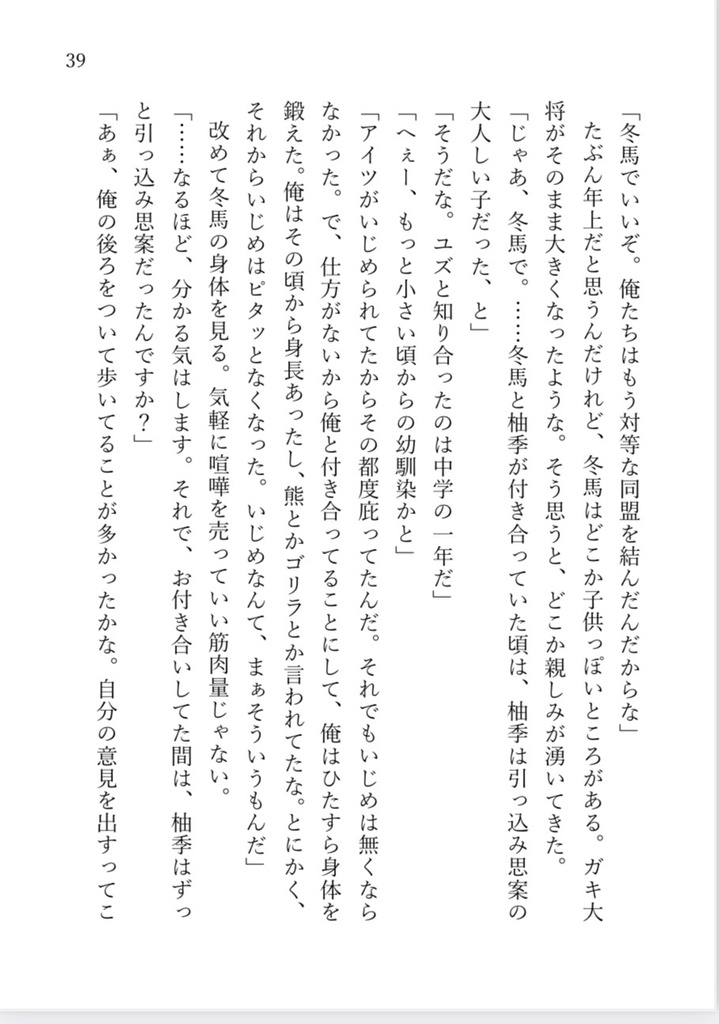 39
「冬馬でいいぞ。俺たちはもう対等な同盟を結んだんだからな」
たぶん年上だと思うんだけれど、冬馬はどこか子供っぽいところがある。ガキ大
将がそのまま大きくなったような。そう思うと、どこか親しみが湧いてきた。
「じゃあ、冬馬で。……冬馬と柚季が付き合っていた頃は、柚季は引っ込み思案の
大人しい子だった、と」
「そうだな。ユズと知り合ったのは中学の一年だ」
「へぇー、もっと小さい頃からの幼馴染かと」
「アイツがいじめられてたからその都度庇ってたんだ。それでもいじめは無くなら
なかった。で、仕方がないから俺と付き合ってることにして、俺はひたすら身体を
鍛えた。俺はその頃から身長あったし、熊とかゴリラとか言われてたな。とにかく、
それからいじめはピタッとなくなった。いじめなんて、まぁそういうもんだ」
改めて冬馬の身体を見る。気軽に喧嘩を売っていい筋肉量じゃない。
「……なるほど、分かる気はします。それで、お付き合いしてた間は、柚季はずっ
と引っ込み思案だったんですか？」
「あぁ、俺の後ろをついて歩いてることが多かったかな。自分の意見を出すってこ